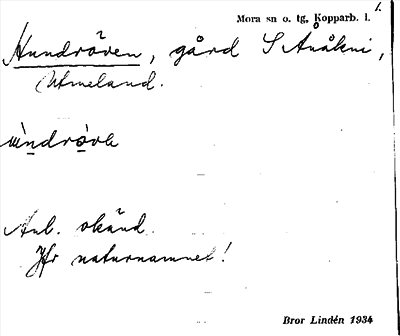 1.
Mora sn o. tg, Kopparb. l.
Hundröven, gård S
Utmeland.
Anl. okänd.
Jfr naturnamnet!
Bror Lindén 1934